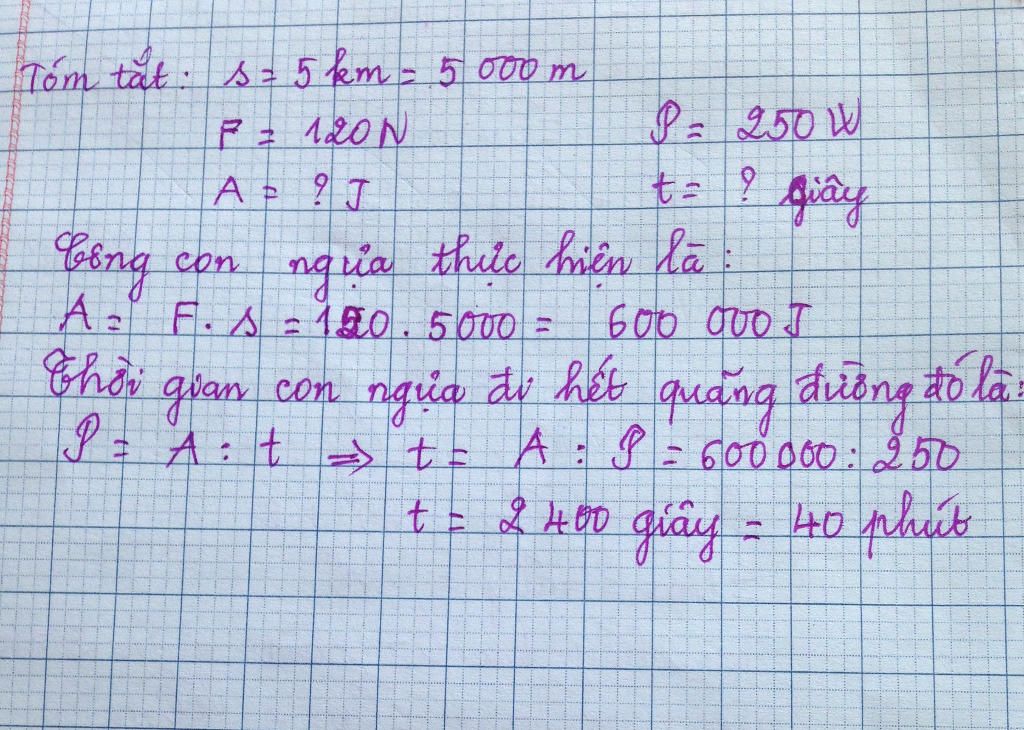 Tóm tắt: s = 5 km = 5 000 m
F = 120 N P = 250 W
A = ? J t = ? giây
Công con ngựa thực hiện là:
A = F. s = 120. 5000 = 600 000 J
Thời gian con ngựa đi hết quãng đường đó là:
P = A : t => t = A : P = 600 000 : 250
t = 2 400 giây = 40 phút